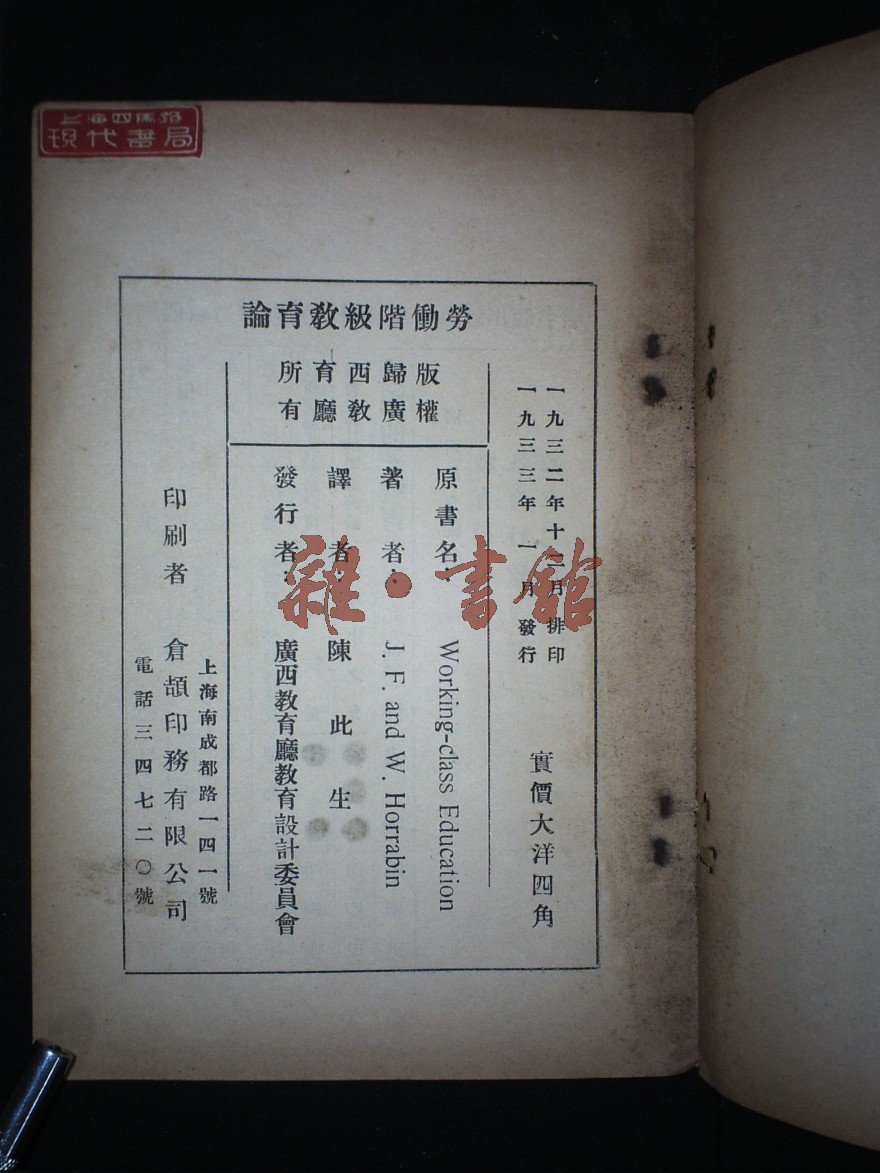 上海四馬路
現代書局
勞働階級教育論
一九三二年十二月排印
一九三三年一月發行
實價大洋四角
版權
歸廣
西教
育廳
所有
原書名: Working-class Education
著者: J. F. and W. Horrabin
譯者: 陳此生
發行者: 廣西教育廳教育設計委員會
上海南成都路一四一號
印刷者 倉頡印務有限公司
電話三四七二〇號
雜·書館